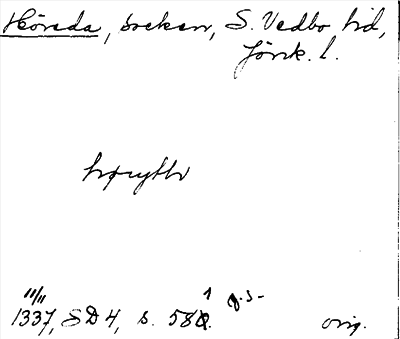 Höreda, socken, S. Vedbo hd,
Jönk. l.
hørydhr
11/11
1337, SD 4, s. 581. g.s-
orig.